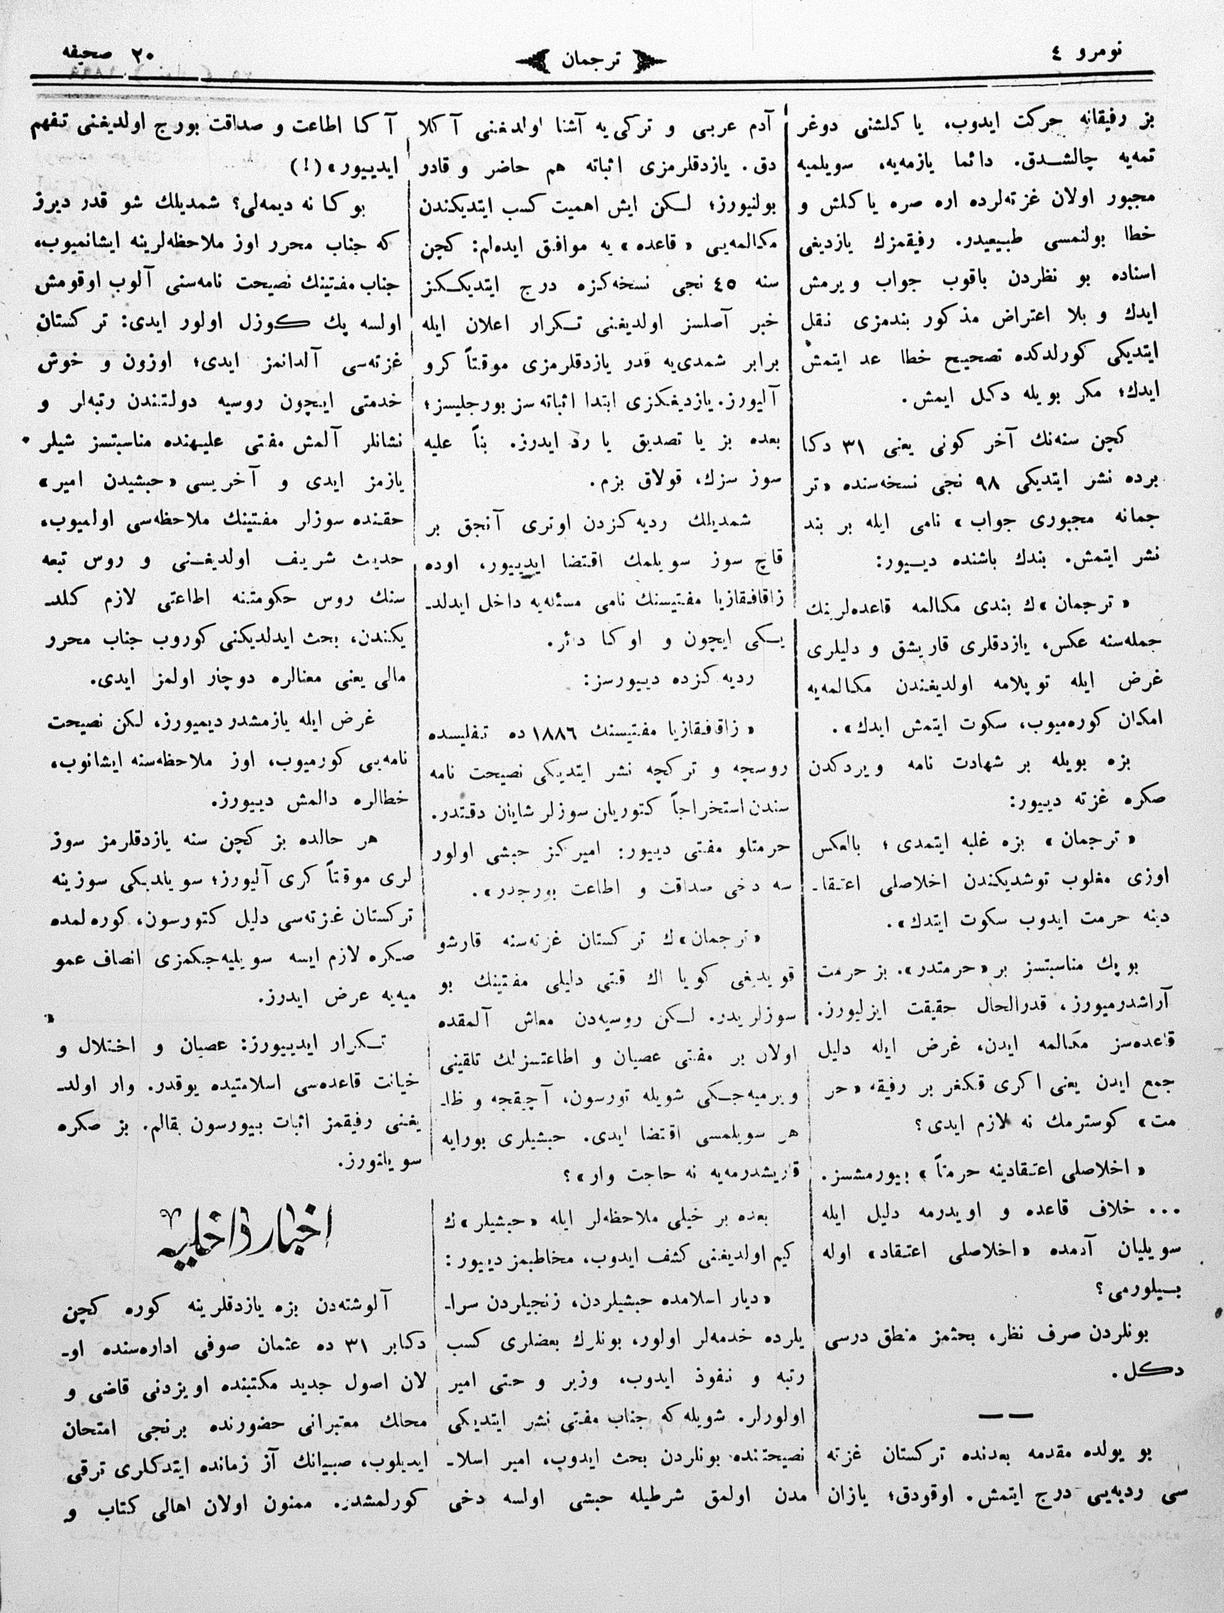 نومرو ٤
ترجمان
٢٠ صحیفه
بز رفیقانه حرکت ایدوب، یاکلشنی دوغر
تمه‌یه چالشدق. دائما یازمه‌یه، سویلمیه
مجبور اولان غزته‌لرده اره صره یاکلش و
خطا بولنمسی طبیعیدر. رفیقمزك یازدیغی
اسناده بو نظردن باقوب جواب ویرمش
ایدك و بلا اعتراض مذکور بندمزی نقل
ایتدیکی کورلدکده تصحیح خطا عد ایتمش
ایدك؛ مکر بویله دکل ایمش.
کچن سنه‌نك آخر کونی یعنی ٣١ دکا
برده نشر ایتدیکی ٩٨ نجی نسخه‌سنده «تر
جمانه مجبوری جواب» نامی ایله بر بند
نشر ایتمش. بندك باشنده دییور:
«ترجمان»ك بندی مکالمه قاعده‌لرینك
جمله‌سنه عکس، یازدقلری قاریشق و دلیللری
غرض ایله توپلامه اولدیغندن مکالمه‌یه
امکان کوره‌میوب، سکوت ایتمش ایدك».
بزه بویله بر شهادت نامه ویردکدن
صکره غزته دییور:
«ترجمان» بزه غلبه ایتمدی؛ بالعکس
اوزی مغلوب توشدیکندن اخلاصلی اعتقا‌ـ
دینه حرمت ایدوب سکوت ایتدك».
بو پك مناسبتسز بر «حرمتدر». بز حرمت
آراشدرمیورز، قدرالحال حقیقت ایزلیورز.
قاعده‌سز مکالمه ایدن، غرض ایله دلیل
جمع ایدن یعنی اکری فکغر بر رفیقه «حر
مت» کوسترمك نه لازم ایدی؟
«اخلاصلی اعتقادینه حرمتاً» بیورمشسز.
... خلاف قاعده و اویدرمه دلیل ایله
سویلیان آدمده «اخلاصلی اعتقاد» اوله
بیلورمی؟
بونلردن صرف نظر، بحثمز منطق درسی
دکل.
بو یولده مقدمه بعدنده ترکستان غزته
سی ردیه‌یی درج ایتمش. اوقودق؛ یازان
آدم عربی و ترکی‌یه آشنا اولدغنی آکلا
دق. یازدقلرمزی اثباته هم حاضر و قادر
بولنیورز؛ لکن ایش اهمیت کسب ایتدیکندن
مکالمه‌یی «قاعده» یه موافق ایده‌لم: کچن
سنه ٤٥ نجی نسخه‌کزه درج ایتدیککز
خبر آصلسز اولدیغنی تکرار اعلان ایله
برابر شمدی‌یه قدر یازدقلرمزی موقتاً کرو
آلیورز. یازدیغکزی ابتدا اثباته سز بورجلیسز؛
بعده بز یا تصدیق یا رد ایدرز. بناً علیه
سوز سزك، قولاق بزم.
شمدیلك ردیه‌کزدن اوتری آنجق بر
قاچ سوز سویلمك اقتضا ایدییور، اوده
زاقافقازیا مفتیسنك نامی مسئله‌یه داخل ایدلد‌ـ
یکی ایچون و اوکا دائر.
ردیه کزده دییورسز:
«زاقافقازیا مفتیسنك ١٨٨٦ ده تفلیسده
روسچه و ترکچه نشر ایتدیکی نصیحت نامه
سندن استخراجاً کتوریلن سوزلر شایان دقتدر.
حرمتلو مفتی دییور: امیرکز حبشی اولور
سه دخی صداقت و اطاعت بورجدر».
«ترجمان»ك ترکستان غزته‌سنه قارشو
قویدیغی کویا اك قتی دلیلی مفتینك بو
سوزلریدر. لکن روسیه‌دن معاش آلمقده
اولان بر مفتی عصیان و اطاعتسزلك تلقینی
ویرمیه‌جکی شویله تورسون، آچیقجه و ظا‌ـ
هر سویلمسی اقتضا ایدی. حبشیلری بورایه
قاریشدرمه‌یه نه حاجت وار»؟
بعده بر خیلی ملاحظه‌لر ایله «حبشیلر»ك
کیم اولدیغنی کشف ایدوب، مخاطبمز دییور:
«دیار اسلامده حبشیلردن، زنجیلردن سرا‌ـ
یلرده خدمه‌لر اولور، بونلرك بعضلری کسب
رتبه و نفوذ ایدوب، وزیر و حتی امیر
اولورلر. شویله که جناب مفتی نشر ایتدیکی
نصیحتنده بونلردن بحث ایدوب، امیر اسلا‌ـ
مدن اولمق شرطیله حبشی اولسه دخی
آکا اطاعت و صداقت بورج اولدیغنی تفهم
ایدییور» (!)
بوکا نه دیمه‌لی؟ شمدیلك شو قدر دیرز
که جناب محرر اوز ملاحظه‌لرینه ایشانمیوب،
جناب مفتینك نصیحت نامه‌سنی آلوب اوقومش
اولسه پك کوزل اولور ایدی: ترکستان
غزته‌سی آلدانمز ایدی؛ اوزون و خوش
خدمتی ایچون روسیه دولتندن رتبه‌لر و
نشانلر آلمش مفتی علیهنده مناسبتسز شیلر
یازمز ایدی و آخریسی «حبشیدن امیر»
حقنده سوزلر مفتینك ملاحظه‌سی اولمیوب،
حدیث شریف اولدیغنی و روس تبعه
سنك روس حکومتنه اطاعتی لازم کلد‌ـ
یکندن، بحث ایدلدیکنی کوروب جناب محرر
مالی یعنی معنالره دوچار اولمز ایدی.
غرض ایله یازمشدر دیمیورز، لکن نصیحت
نامه‌یی کورمیوب، اوز ملاحظه‌سنه ایشانوب،
خطالره دالمش دییورز.
هر حالده بز کچن سنه یازدقلرمز سوز
لری موقتاً کری آلیورز؛ سویلدیکی سوزینه
ترکستان غزته‌سی دلیل کتورسون، کوره‌لمده
صکره لازم ایسه سویلیه‌جکمزی انصاف عمو
میه‌یه عرض ایدرز.
تکرار ایدییورز: عصیان و اختلال و
خیانت قاعده‌سی اسلامتیده یوقدر. وار اولد‌ـ
یغنی رفیقمز اثبات بیورسون بقالم. بز صکره
سویلتورز.
اخبار داخلیه
آلوشته‌دن بزه یازدقلرینه کوره کچن
دکابر ٣١ ده عثمان صوفی اداره‌سنده او‌ـ
لان اصول جدید مکتبنده اویزدنی قاضی و
محلك معتبرانی حضورنده برنجی امتحان
ایدیلوب، صبیانك آز زمانده ایتدکلری ترقی
کورلمشدر. ممنون اولان اهالی کتاب و